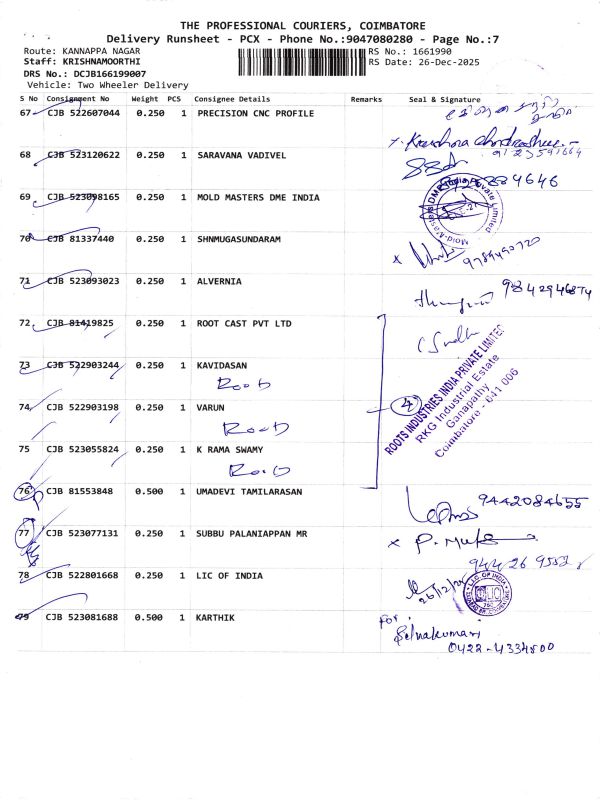 THE PROFESSIONAL COURIERS, COIMBATORE
Delivery Runsheet - PCX - Phone No.:9047080280 - Page No.:7
Route: KANNAPPA NAGAR
RS No.: 1661990
Staff: KRISHNAMOORTHI
RS Date: 26-Dec-2025
DRS No.: DCJB166199007
Vehicle: Two Wheeler Delivery
S No Consignment No Weight PCS Consignee Details Remarks Seal & Signature
67 CJB 522607044 0.250 1 PRECISION CNC PROFILE
68 CJB 523120622 0.250 1 SARAVANA VADIVEL
69 CJB 523098165 0.250 1 MOLD MASTERS DME INDIA
70 CJB 81337440 0.250 1 SHNMUGASUNDARAM
9789490720
71 CJB 523093023 0.250 1 ALVERNIA
9842946874
72 CJB 81419825 0.250 1 ROOT CAST PVT LTD
73 CJB 522903244 0.250 1 KAVIDASAN
4
ROOTS INDUSTRIES INDIA PRIVATE LIMITED
RKG Industrial Estate
Ganapathy
Coimbatore - 641 006
74 CJB 522903198 0.250 1 VARUN
75 CJB 523055824 0.250 1 K RAMA SWAMY
76 CJB 81553848 0.500 1 UMADEVI TAMILARASAN
9442084655
77 CJB 523077131 0.250 1 SUBBU PALANIAPPAN MR
78 CJB 522801668 0.250 1 LIC OF INDIA
26/12/25
L.I.C. OF INDIA
79 CJB 523081688 0.500 1 KARTHIK
For
0422-4334500